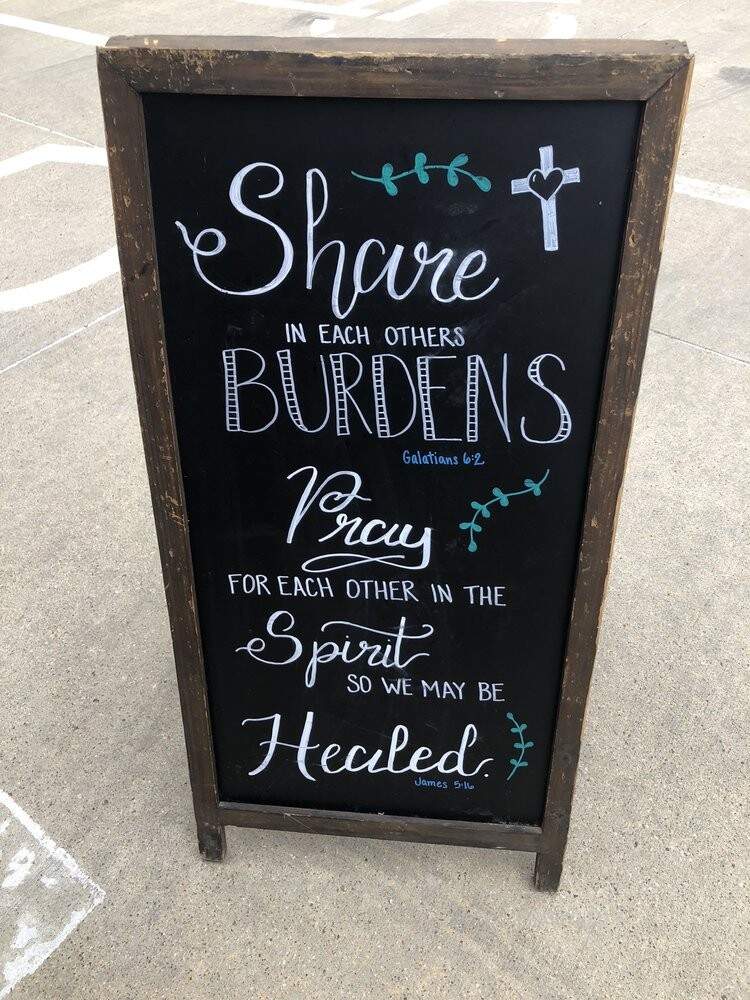 Share
IN EACH OTHERS
BURDENS
Galatians 6:2
Pray
FOR EACH OTHER IN THE
Spirit
SO WE MAY BE
Healed.
James 5:16